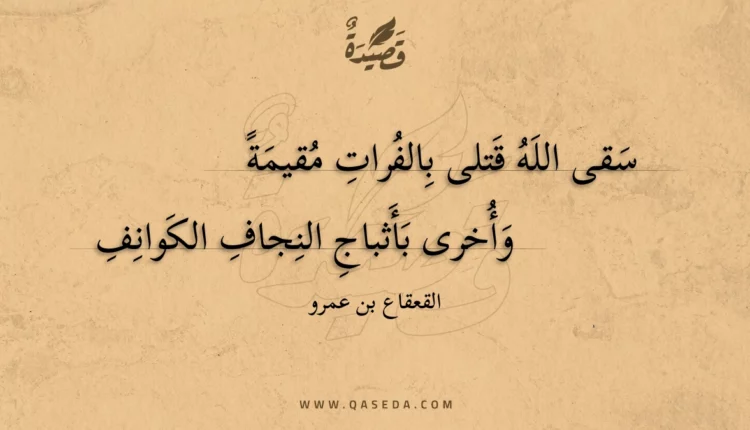 قَصِيدَةٌ
سَقى اللَهُ قَتلى بِالفُراتِ مُقيمَةً
وَأُخرى بَأَثباجِ النِجافِ الكَوانِفِ
القعقاع بن عمرو
WWW.QASEDA.COM